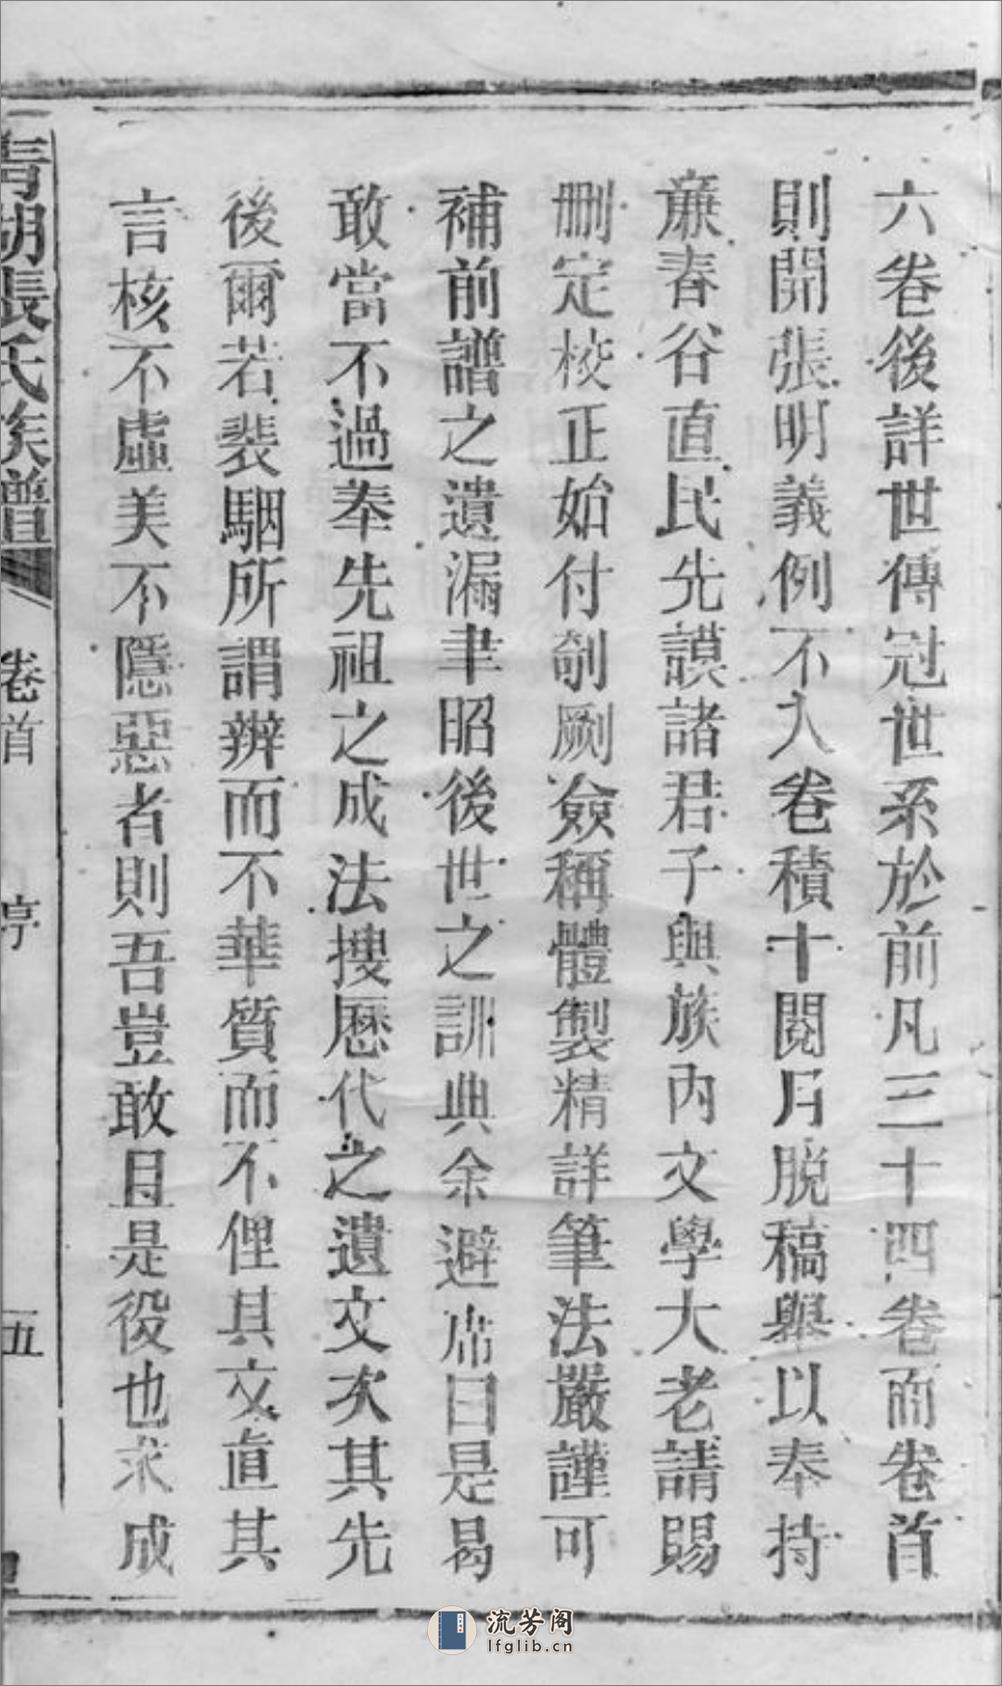 六卷後詳世傳冠世系於前凡三十四卷而卷首
則開張明義例不入卷積十閱月脱稿舉以奉持
廉春谷直民先謨諸君子與族內文學大老請賜
删定校正始付剞劂僉稱體製精詳筆法嚴謹可
補前譜之遺漏聿昭後世之訓典余避席曰是曷
敢當不過奉先祖之成法搜歷代之遺文次其先
後爾若裴駰所謂辨而不華質而不俚其文直其
言核不虛美不隱惡者則吾豈敢且是役也求成
青湖張氏族譜
卷首
序
五
流芳阁
lfglib.cn